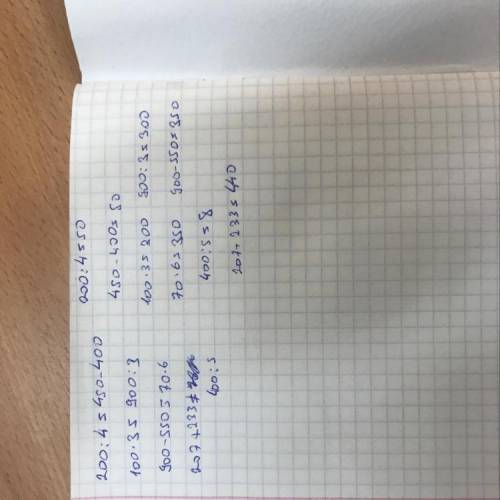 200:4=450-400 200:4=50
450-400=50
100·3=900:3 100·3=200 900:3=300
900-550=70·6 70·6=350 900-550=350
207+233≠ 400:5=8
400:5 207+233=440